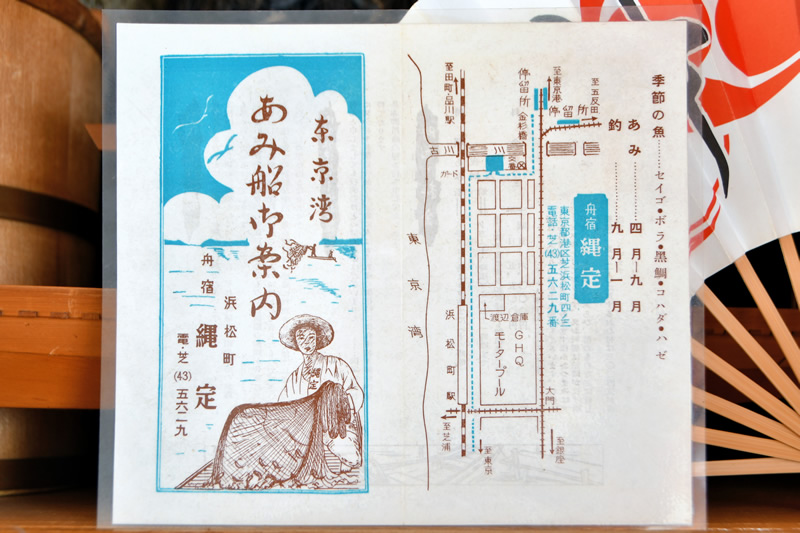 東京湾
あみ船御案内
舟宿
浜松町
縄定
電・芝(43)五六二九
季節の魚……セイゴ・ボラ・黒鯛・コハダ・ハゼ
あみ………四月―九月
釣………九月―一月
舟宿 縄定
東京都港区芝浜松町四ノ三
電話・芝(43)五六二九番
至五反田
至東京港
停留所
停留所
金杉橋
至田町・品川駅
古川
ガード
交番
東京湾
渡辺倉庫
GHQ
モータープール
浜松町駅
大門
至芝浦
至東京
至銀座
縄定